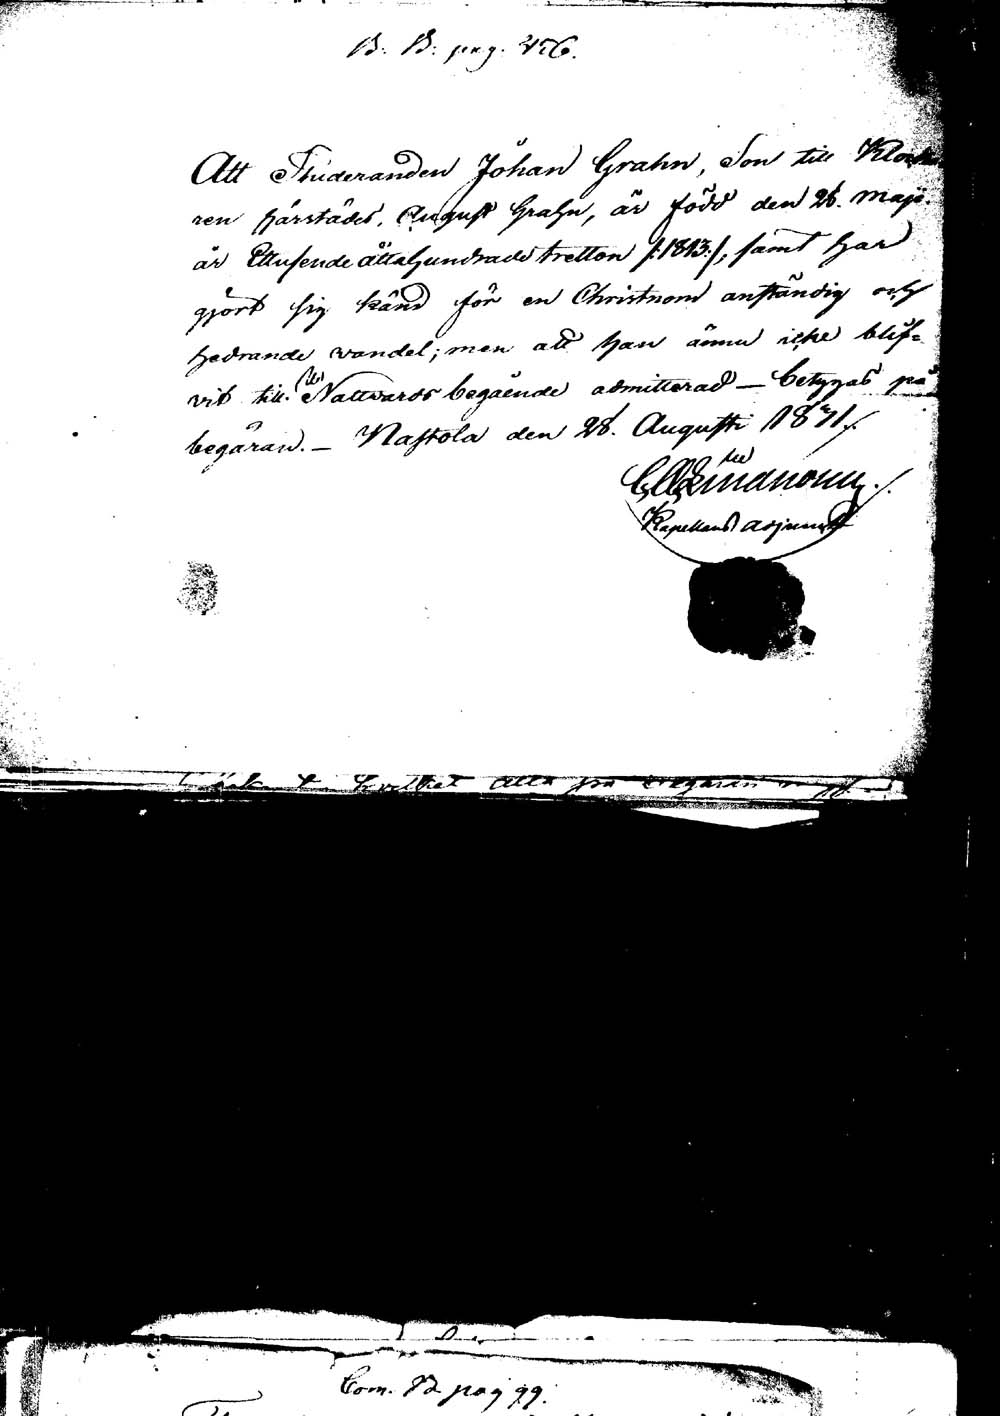 B. B. pag. 476.
Att Studeranden Johan Grahn, Son till Klocka
ren härstädes, August Grahn, är född den 26. Maji
år Ettusende åttahundrade tretton /:1813:/, samt har
gjort sig känd för en Christnom anständig och
hedrande vandel; men att han ännu icke blif=
vit till Nattvards begående admitterad — betygas på
begäran. — Nastola den 28. Augusti 1831./.
Kapellans Adjunct
hvilket
begäran
Com. Bd pag 99.